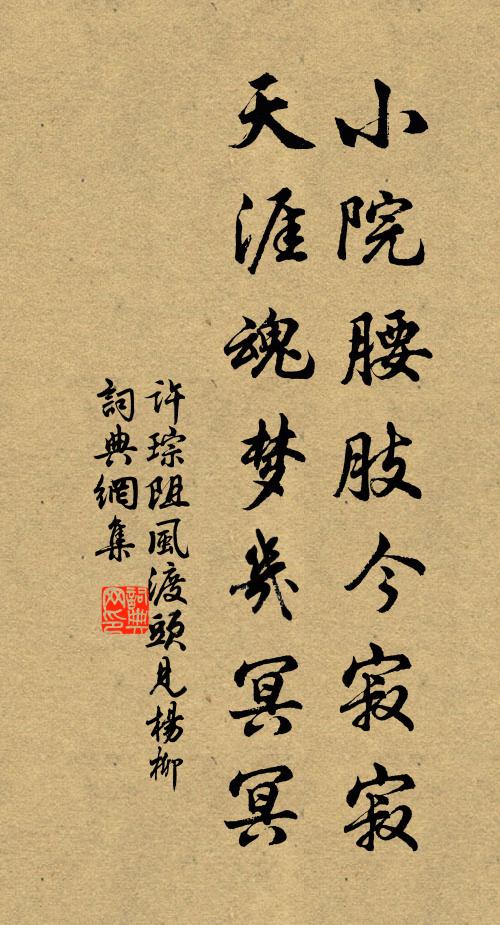 小院腰肢今寂寂
天涯魂梦几冥冥
许琮阻風渡頭見楊柳
詞典網集
詞典網印